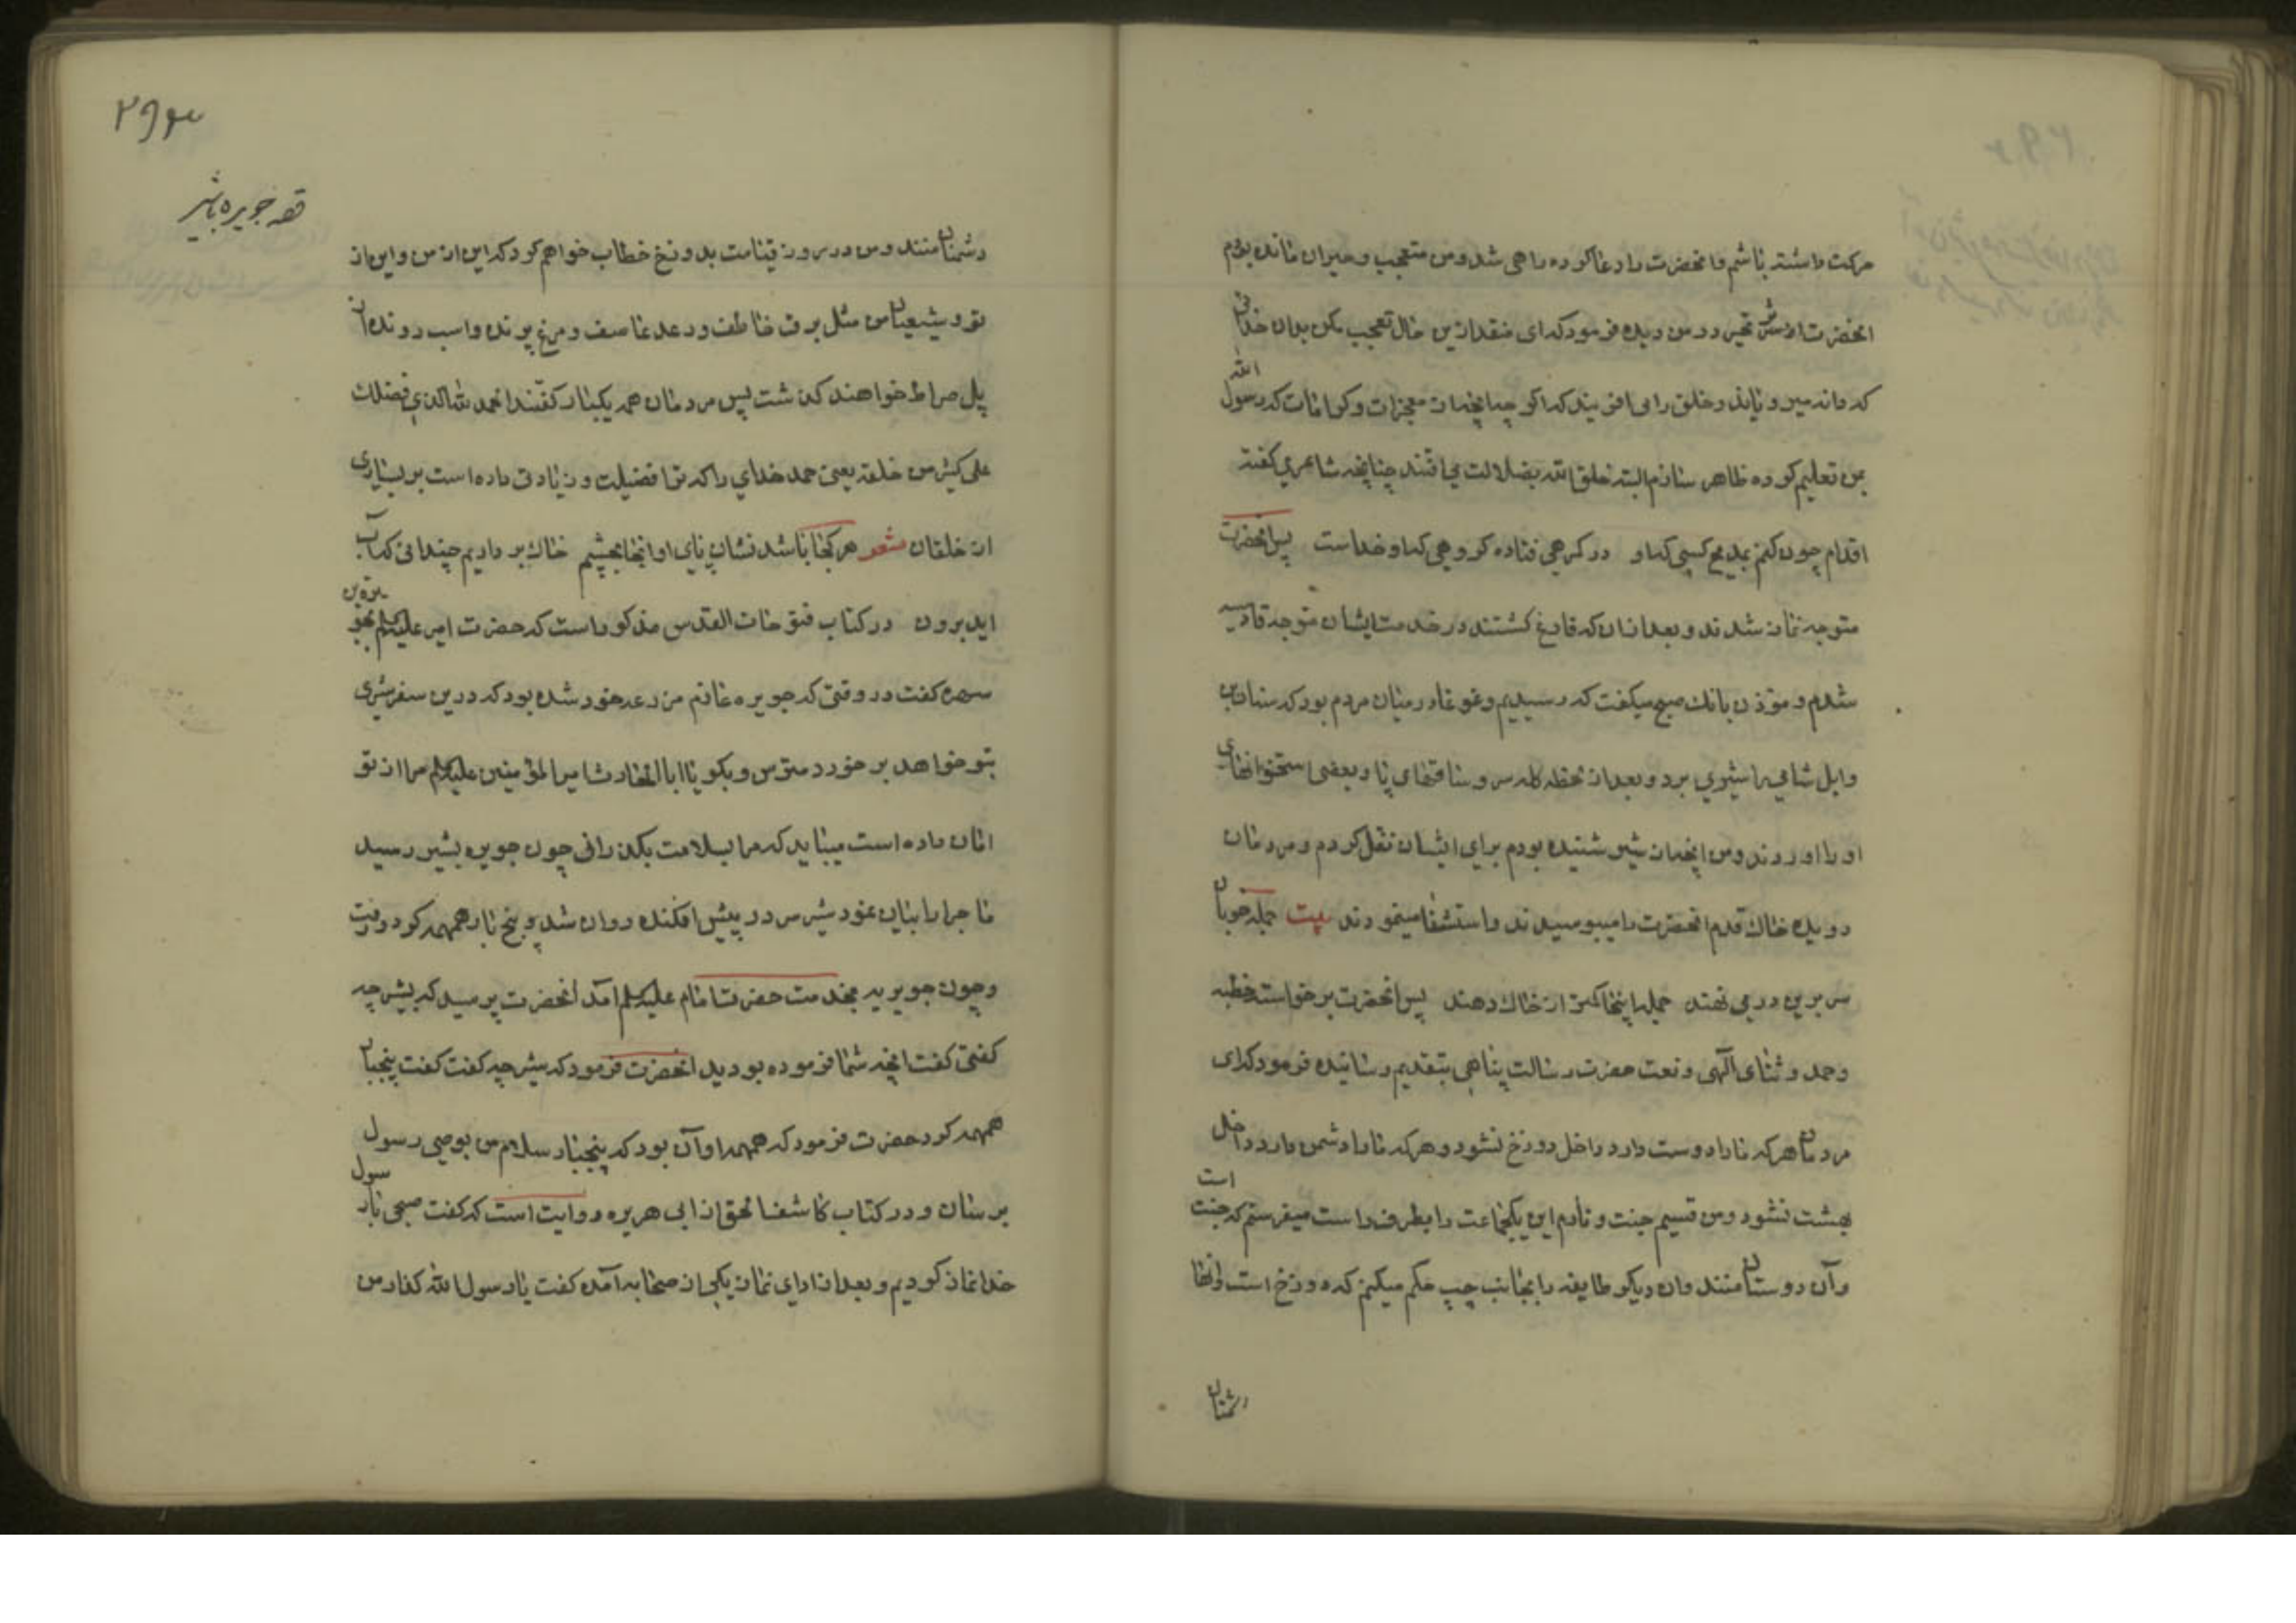 حرکت داشته باشم و آنحضرت را دعا کرده راهی شد و من متعجب و حیران مانده بودم
آنحضرت اثر تحیر در من دیده فرمود که ای منقذ ازین حال تعجب مکن بدان خدائی
که دانه میرویاند و خلق را می آفریند که اگر چیزی از معجزات و کرامات که رسول الله
بمن تعلیم کرده ظاهر سازم البته خلق الله بضلالت می افتند چنانچه شاعری گفته
اقدام چون کنم بمدیح کسی که او در گمرهی فتاده گروهی که او خداست پس آنحضرت
متوجه نماز شدند و بعد از آن که فارغ گشتند در خدمت ایشان متوجه قادسیه
شدم و مؤذن بانک صبح میگفت که رسیدیم و غوغا در میان مردم بود که سنان بن
وابل شامی را شیری برد و بعد از لحظه کله سر و ساقهای پا و بعضی استخوانهای
او را آوردند و من آنچه از شیر شنیده بودم برای ایشان نقل کردم و مردمان
دویده خاک قدم آنحضرت را میبوسیدند و استشفا مینمودند بیت جمله خوبان
سر برین در می نهند جمله را اینجا کمتر از خاک دهند پس آنحضرت برخواست خطبه
و حمد و ثنای آلهی و نعت حضرت رسالت پناهی بتقدیم رسانیده فرمود که ای
مردمان هر که ما را دوست دارد داخل دوزخ نشود و هر که ما را دشمن دارد داخل
بهشت نشود و من قسیم جنت و نارم این یکجماعت را بطرف راست میفرستم که جنت است
و آن دوستان منند و آن دیکر طایفه را بجانب چپ حکم میکنم که دوزخ است و آنها
دشمنان
۲۹۳
قصه جویره باشیر
دشمنان منند و من در روز قیامت بدوزخ خطاب خواهم کرد که این از من و این از
تو و شیعیان من مثل برق خاطف و رعد عاصف و مرغ پرنده و اسب دونده از
پل صراط خواهند کذشت پس مردمان همه یکبار کفتند الحمد لله الذی فضلک
علی کثیر من خلقه یعنی حمد خدای را که ترا فضیلت و زیادتی داده است بر بسیاری
از خلقان شعر هر کجا باشد نشان پای او آنجا بچشم خاک برداریم چندانی که آب
آید برون در کتاب فتوحات القدس مذکور است که حضرت امیر علیه السلم بجویریه بن
سهره کفت در وقتی که جویره عازم مزرعه خود شده بود که درین سفر شیری
بتو خواهد برخورد مترس و بکو یا ابا الحارث امیر المؤمنین علیه السلم مرا از تو
امان داده است میباید که مرا بسلامت بکذرانی چون جویره بشیر رسید
ماجرا را بیان نمود شیر سر در پیش افکنده روان شد و پنج بار همهمه کرد و رفت
و چون جویریه بخدمت حضرت امام علیه السلم آمد آنحضرت پرسید که بشیر چه
کفتی کفت آنچه شما فرموده بودید آنحضرت فرمود که شیر چه کفت کفت پنجبار
همهمه کرد حضرت فرمود که همهمه او آن بود که پنجبار سلام من بوصی رسول
برسان و در کتاب کاشف الحق از ابی هریره روایت است که کفت صبحی با رسول
خدا نماز کردیم و بعد از ادای نماز یکی از صحابه آمده کفت یا رسول الله کذار من